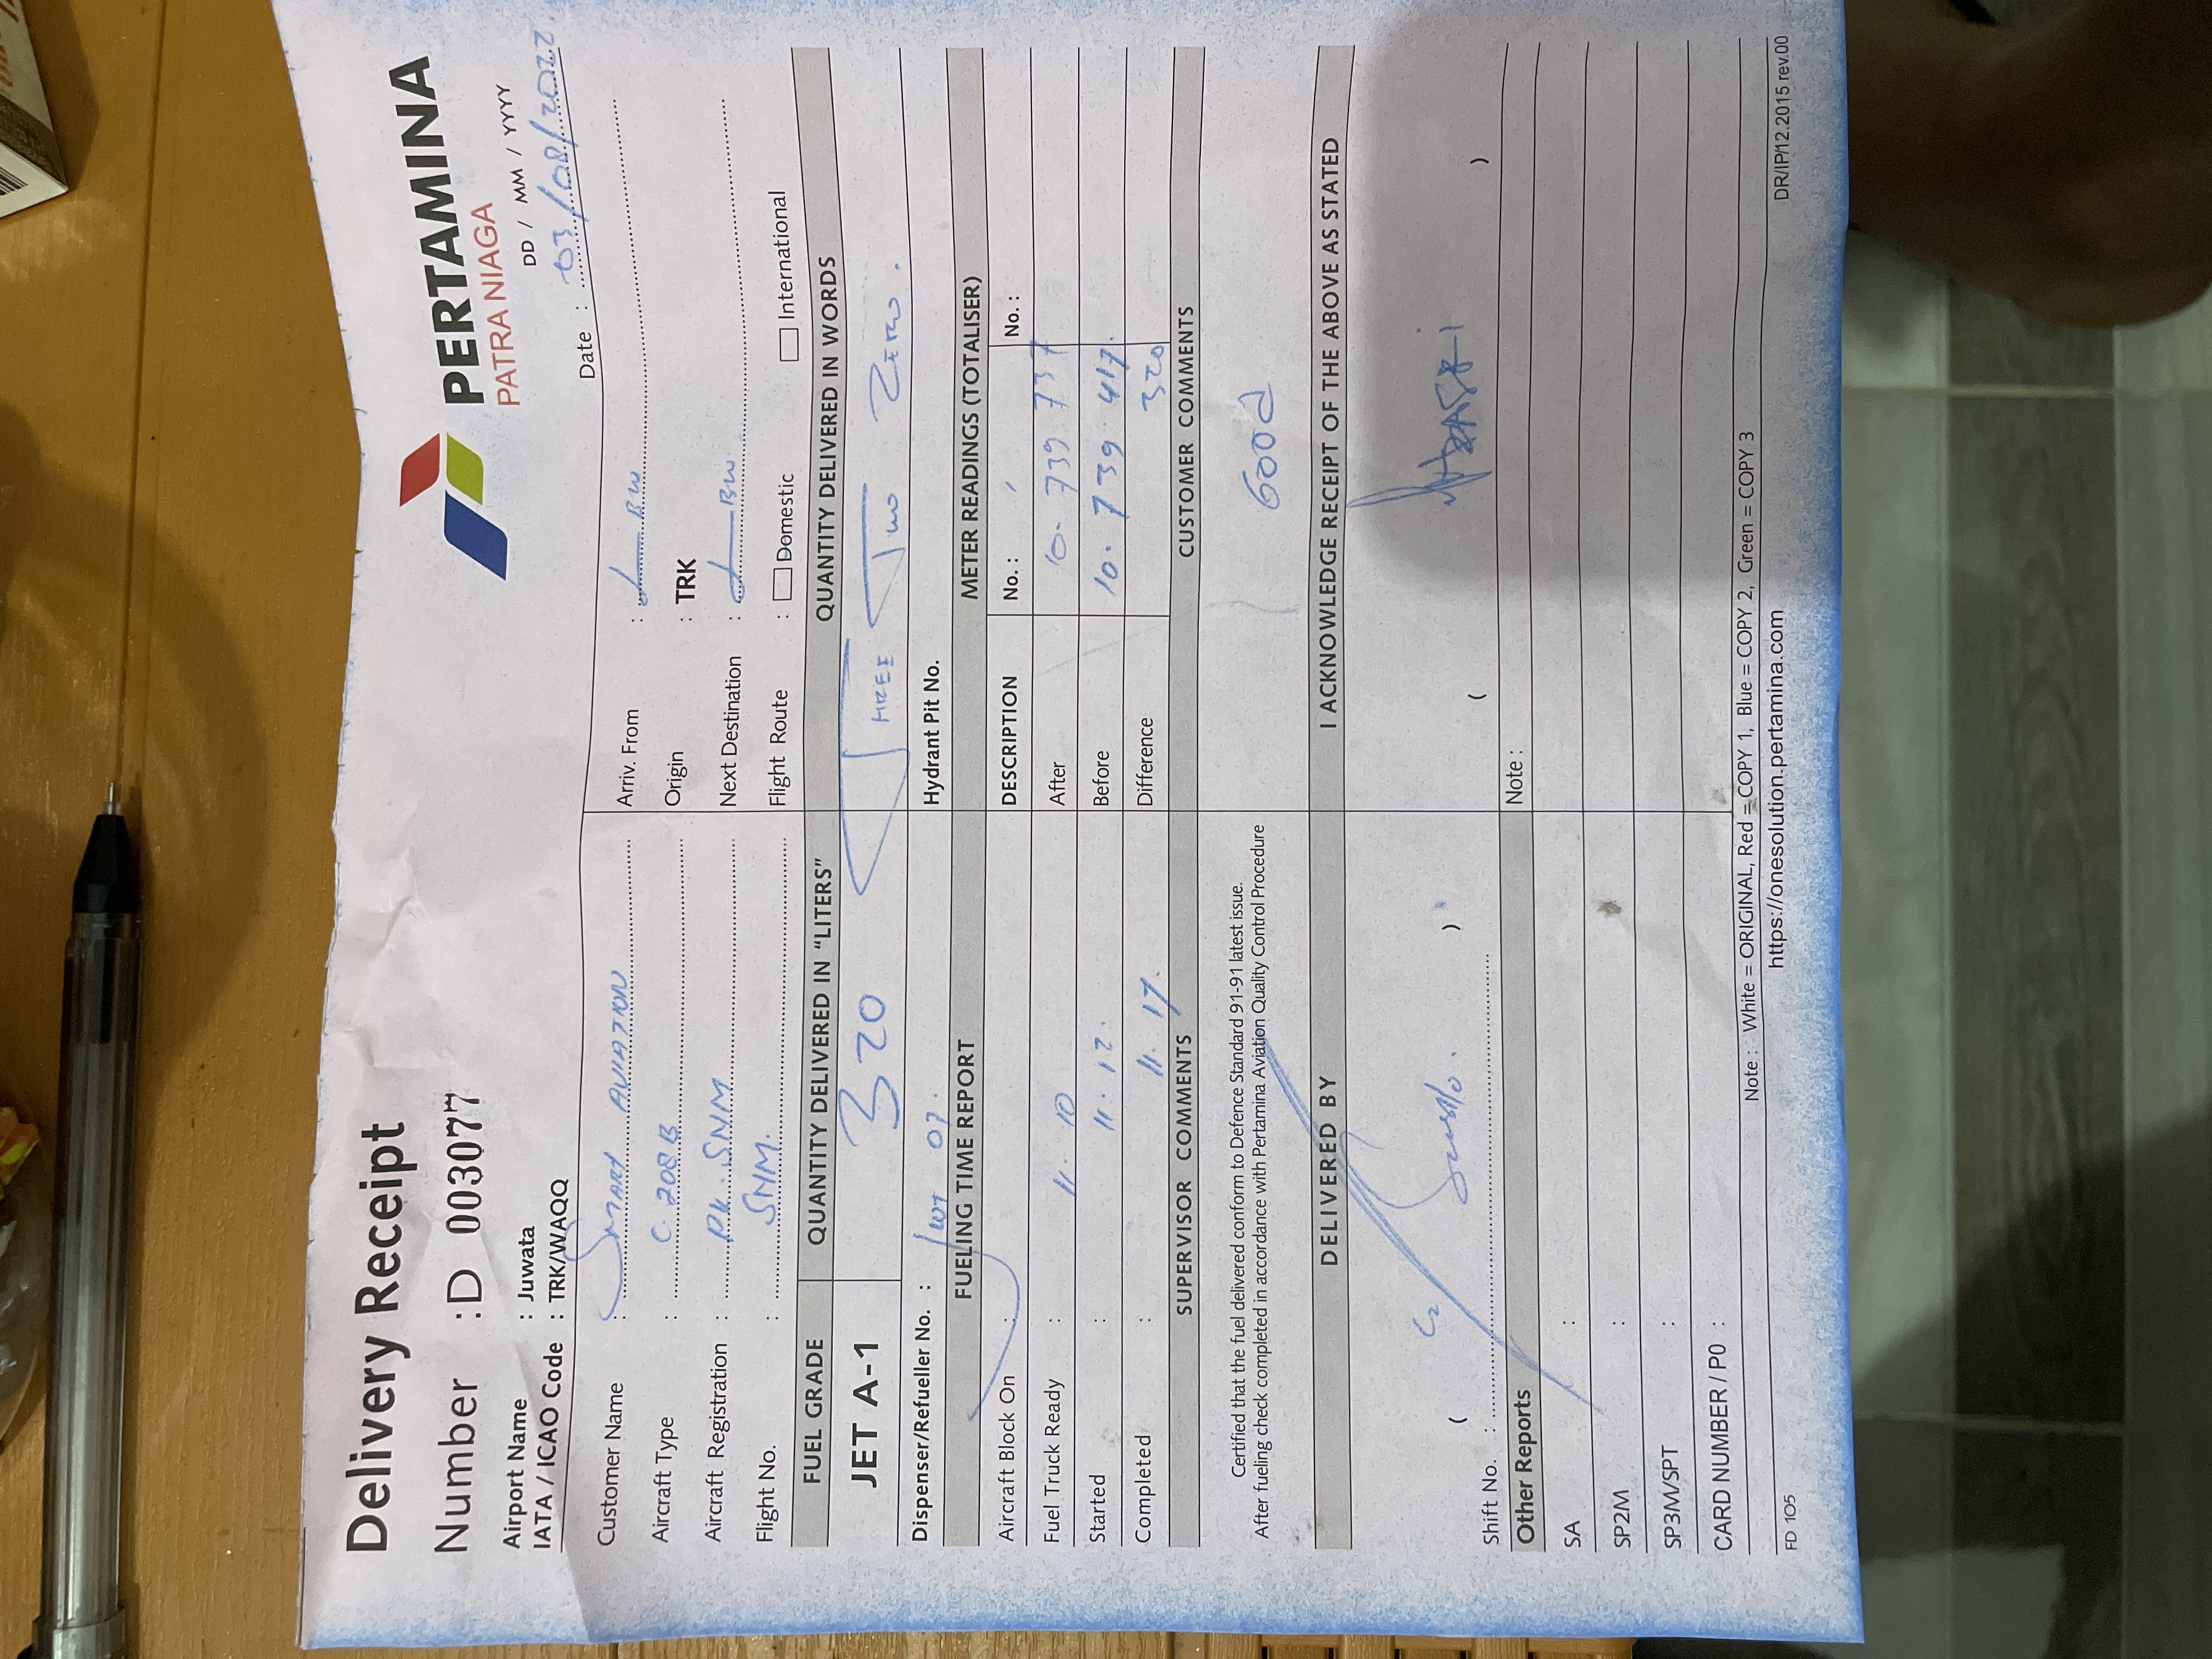 Delivery Receipt
PERTAMINA
PATRA NIAGA
Number :D 003077
DD / MM / YYYY
Airport Name : Juwata
IATA / ICAO Code : TRK/WAQQ
Date : 03/08/2022
Customer Name : SMART AVIATION
Arriv. From : LBW
Aircraft Type : C 208 B
Origin : TRK
Aircraft Registration : PK. SNM
Next Destination : LBW
Flight No. : SNM.
Flight Route : Domestic International
FUEL GRADE QUANTITY DELIVERED IN "LITERS" QUANTITY DELIVERED IN WORDS
JET A-1 320 THREE Two Zero.
Dispenser/Refueller No. : 07.
Hydrant Pit No.
FUELING TIME REPORT METER READINGS (TOTALISER)
Aircraft Block On : DESCRIPTION No. : No. :
Fuel Truck Ready : 11.10 After 10.739.737
Started : 11.12. Before 10.739.417.
Completed : 11.17. Difference 320
SUPERVISOR COMMENTS CUSTOMER COMMENTS
Certified that the fuel delivered conform to Defence Standard 91-91 latest issue.
After fueling check completed in accordance with Pertamina Aviation Quality Control Procedure
GOOD
DELIVERED BY I ACKNOWLEDGE RECEIPT OF THE ABOVE AS STATED
C2
( ) ( )
Shift No. :
Other Reports Note :
SA :
SP2M :
SP3M/SPT :
CARD NUMBER / PO :
Note : White = ORIGINAL, Red = COPY 1, Blue = COPY 2, Green = COPY 3
FD 105 https://onesolution.pertamina.com DR/IP/12.2015 rev.00